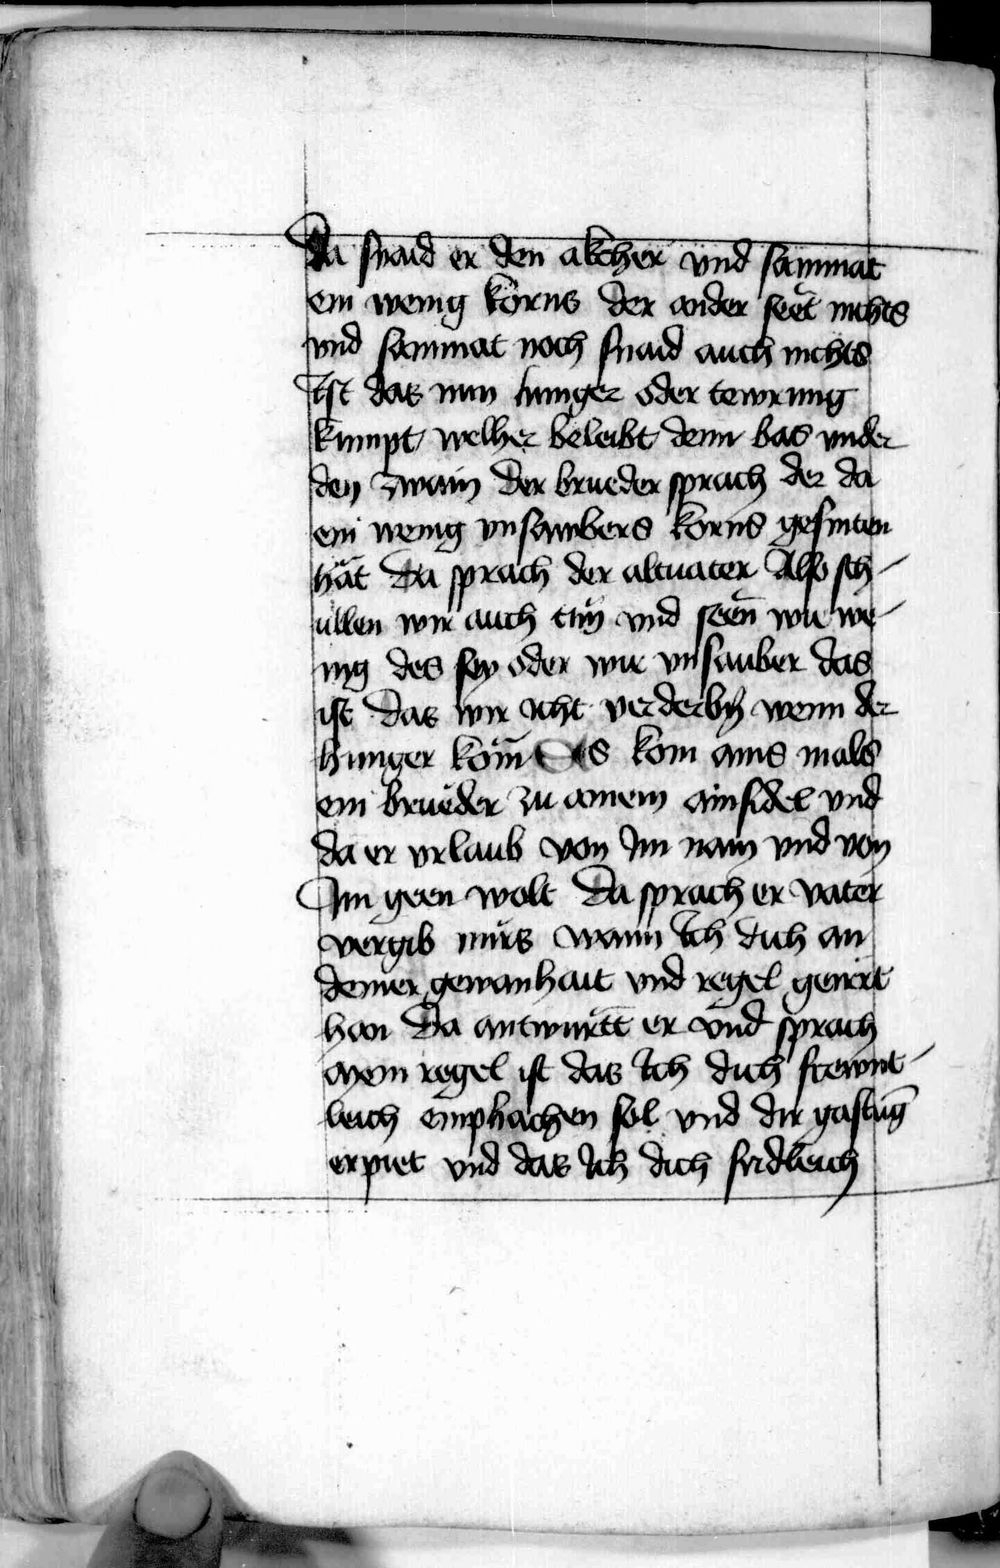 Da snaid er den akcher vnd sammat
ein wenig korns der ander seet nichts
vnd sammat noch snaid auch nichts
Ist das nun hunger oder tewrung
kumpt welher beleibt denn bas vnder
den zwain der brueder sprach der da
ein wenig vnsawbers korns gesniten
hät Da sprach der altuater Also sch-
üllen wir auch tün vnd seen̄ wie we-
nig des sey oder wie vnsauber das
ist das wir icht verderbn̄ wenn der
hunger kom̄ Es kom ains mals
ein brueder zu ainem ainsidel vnd
da er vrlaub von Im nam vnd von
Im geen wolt Da sprach er vater
vergib mirs wann Ich dich an
deiner gewanhait vnd regel geirrt
han Da antwurtt er vnd sprach
mein regel ist das Ich dich frewnt-
leich emphachen sol vnd dir gastūg
erpiet vnd das Ich dich fridleich